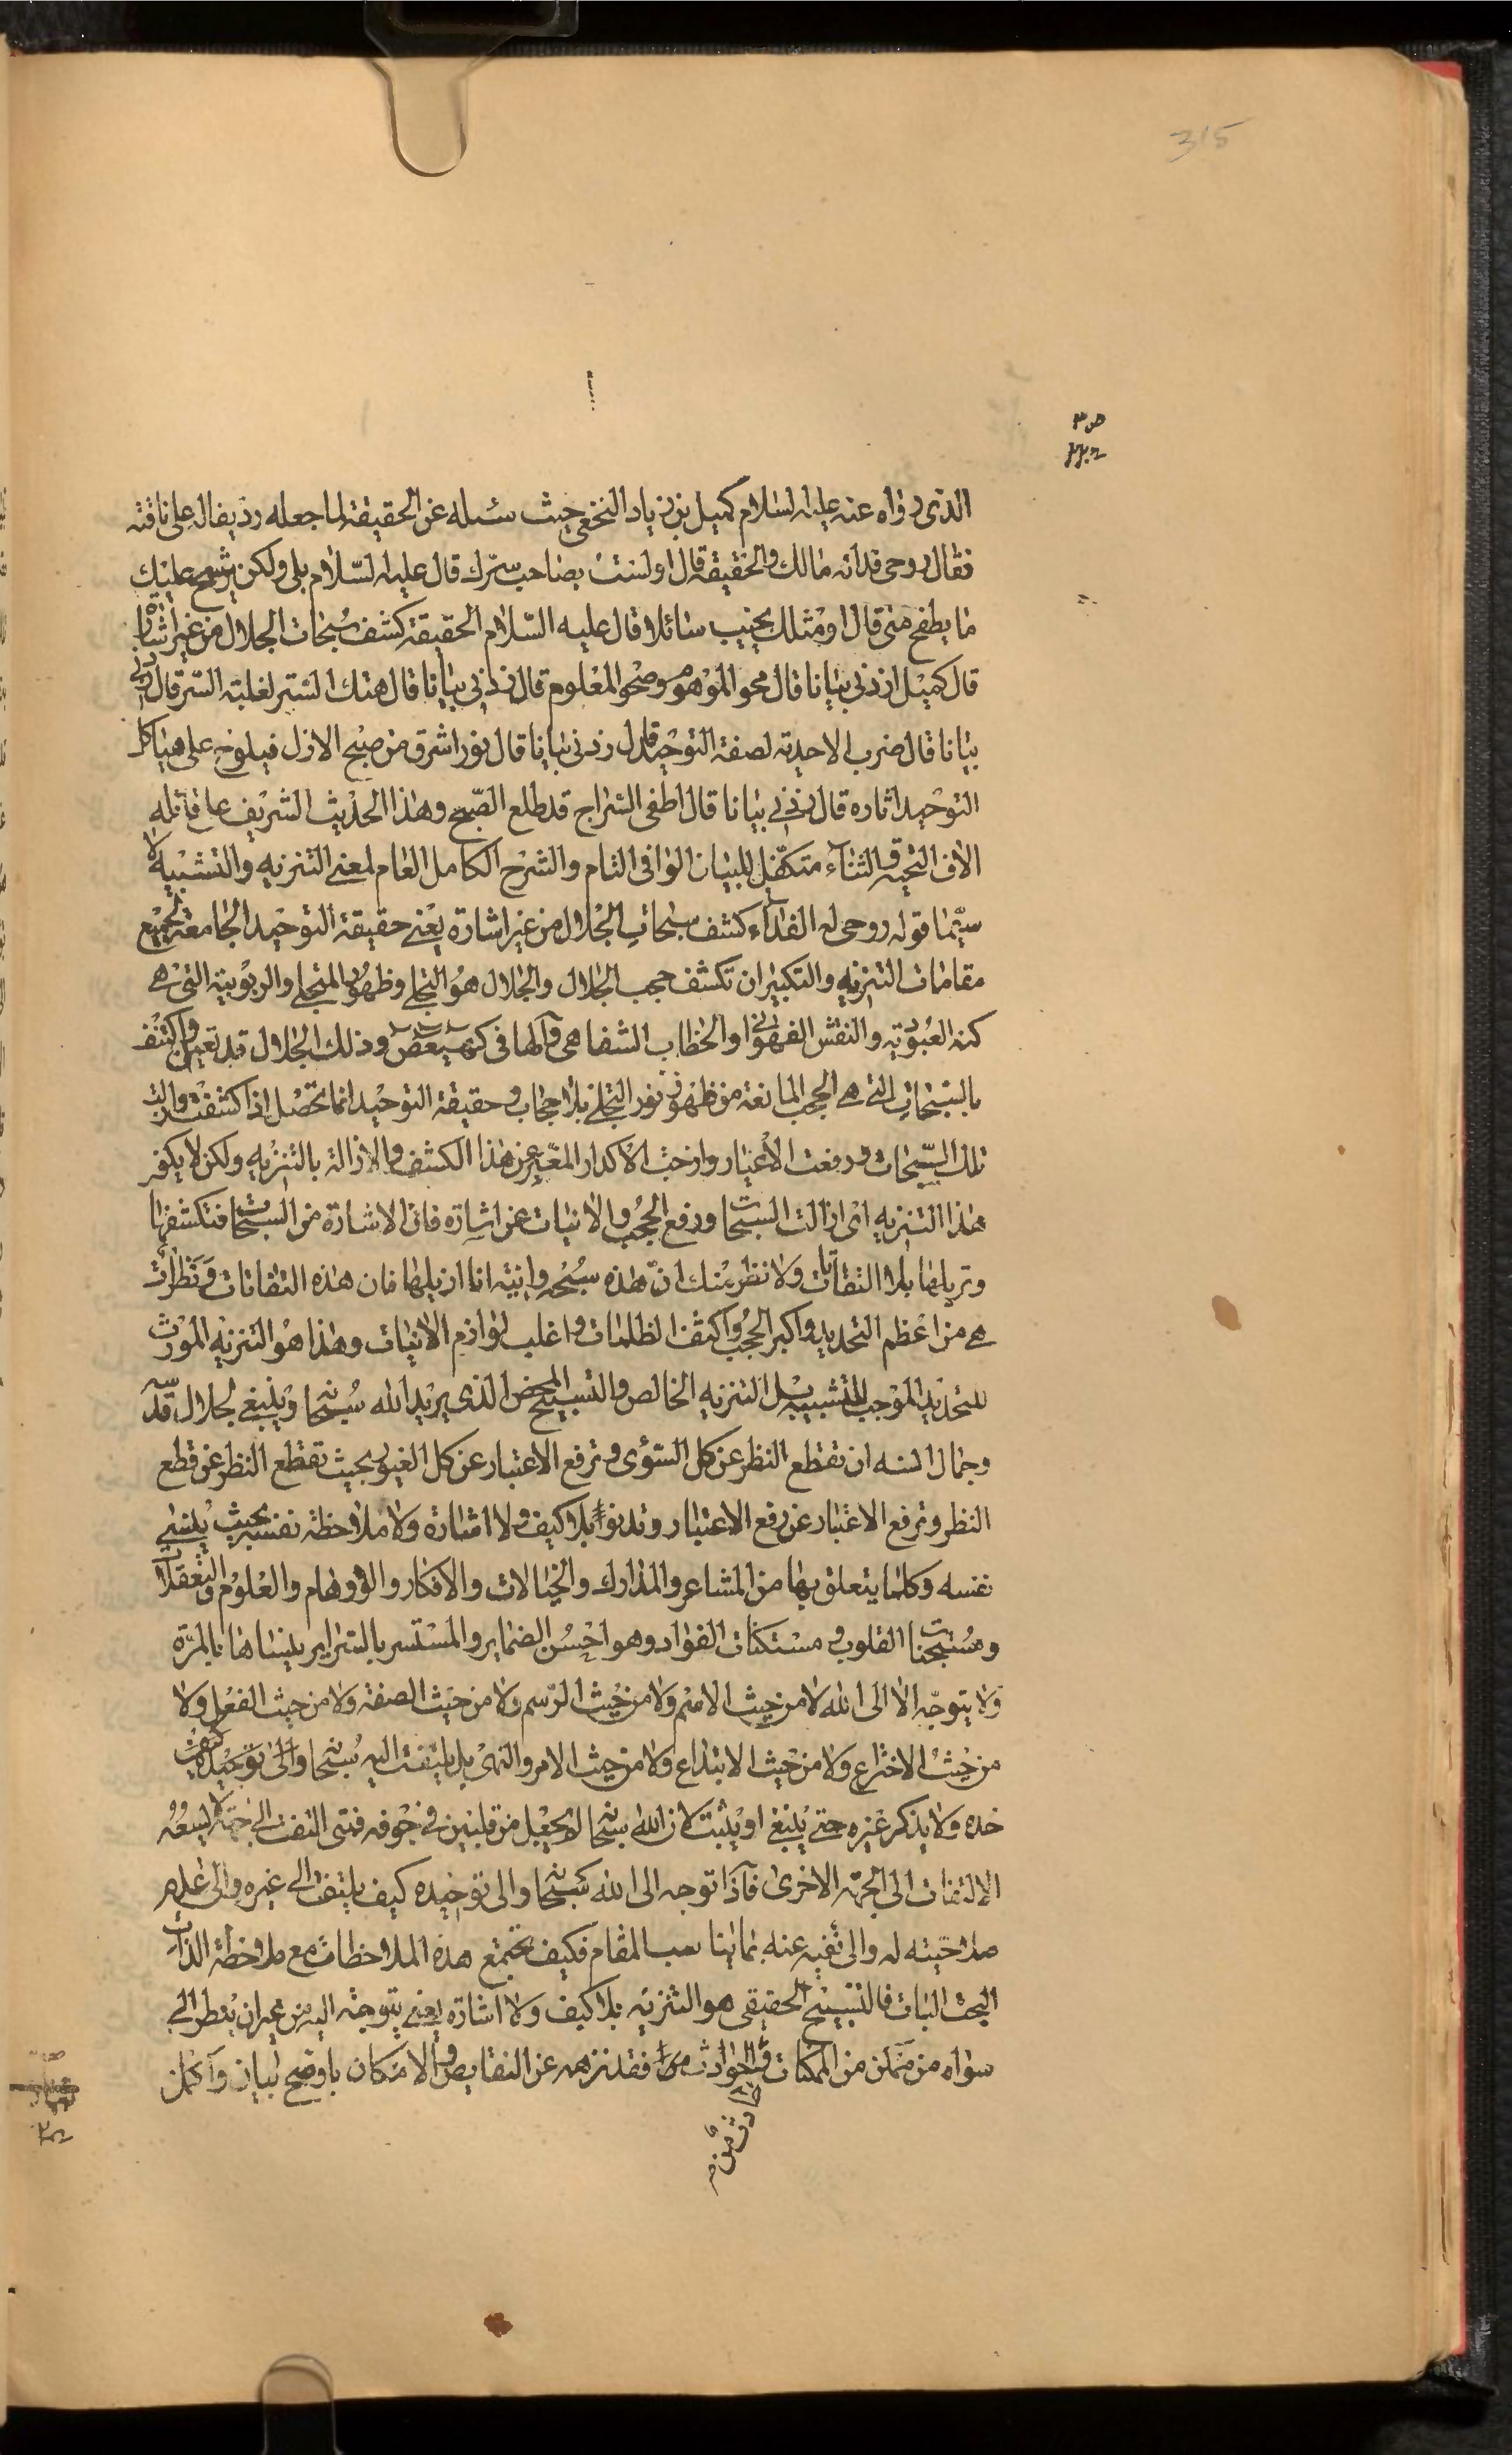 315
ص ٣
الذى رواه عنه عليه السلام كميل بن زياد النخعى حيث سئله عن الحقيقة لما جعله رديفا له على ناقته
فقال روحى فداه مالك والحقيقة قال اولست بصاحب سرّك قال عليه السّلام بلى ولكن يرشح عليك
ما يطفح منى قال اومثلك يخيب سائلا قال عليه السّلام الحقيقة كشف سُبحات الجلال من غير اشارة
قال كميل زدنى بيانا قال محو الموهوم وصحو المعلوم قال زدنى بيانا قال هتك الستر لغلبة السّر قال زدنى
بيانا قال ضرب الاحدية لصفة التوحيد قال زدنى بيانا قال نور اشرق من صبح الازل فيلوح على هياكل
التوحيد اثاره قال زدنى بيانا قال اطفى السّراج قد طلع الصّبح وهذا الحديث الشريف على قائله
الاف التحية والثناء متكفّل للبيان الوافى التام والشرح الكامل العام لمعنى التنزيه والتشبيه
سيّما قوله روحى له الفداء كشف سبحات الجلال من غير اشارة يعنى حقيقة التوحيد الجامعة لجميع
مقامات التنزيه والتكبير ان تكشف حجب الجلال والجلال هو التجلى وظهور المتجلى والربوبية التى هى
كنه العبودية والنقش الفهوانى او الخطاب الشفاهى والها فى كهيعص وذلك الجلال قد تعين واكتنف
بالسّبحات التى هى الحجب المانعة من ظهور نور التجلى بلا حجاب وحقيقة التوحيد انما تحصل اذا كشفت وازلت
تلك السّبحات ورفعت الاغيار وازحت الاكدار المعّبر عن هذا الكشف والازالة بالتنزيه ولكن لا يكون
هذا التنزيه اى ازالت السبحات ورفع الحجب والانيات عن اشارة فان الاشارة من السبحات فتكشفها
وتزيلها بلا التفات ولا نظر منك انّ هذه سُبحة وانية انا ازيلها فان هذه التفاتات ونظرات
هى من اعظم التحديد واكبر الحجب واكثف الظلمات واغلب لوازم الانيات وهذا هو التنزيه المورث
للتحديد الموجب للتشبيه بل التنزيه الخالص والتسبيح المحض الذى يريد الله سُبحانه وينبغى لجلال قدسه
وجمال انسه ان تقطع النظر عن كل السّوى وترفع الاعتبار عن كل الغيور بحيث تقطع النظر عن قطع
النظر وترفع الاعتبار عن رفع الاعتبار بلا كيف ولا اشارة ولا ملاحظة نفسه بحيث ينسى
نفسه وكلما يتعلق بها من المشاعر والمدارك والخيالات والافكار والاوهام والعلوم والتعقلات
القلوب ومستكنات الفؤاد الضماير والمستسر بالسّراير ينساها بالمرّة
ولا يتوجّه الا الى الله لا من حيث الاسم ولا من حيث الرّسم ولا من حيث الصفة ولا من حيث الفعل ولا
من حيث الاختراع ولا من حيث الابتداع ولا من حيث الامر والنهى بل يلتفت اليه سُبحانه والى توحيده
ولا يذكر غيره حتى ينفى او يثبت لان الله سُبحانه لم يجعل من قلبين فى جوفه فمتى التفت الى جهة لا يسعه
الالتفات الى الجهة الاخرى فاذا توجه الى الله سُبحانه والى توحيده كيف يلتفت الى غيره والى عدم
صلاحيته له والى نفيه عنه المقام فكيف تجتمع هذه الملاحظات مع ملاحظة الذات
البحت البات فالتسبيح الحقيقى هو التنزيه بلا كيف ولا اشارة يعنى يتوجه اليه من غير ان ينظر الى
سواه من الممكنات والحوادث فقد نزهه عن النقايص والامكان باوضح بيان واكمل